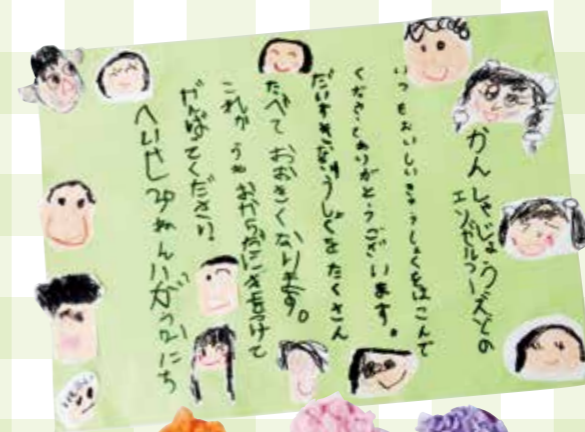 かんしゃじょう
エンゼルフーズどの
いつもおいしいきゅうしょくをはこんで
くださってありがとうございます。
だいすきなきゅうしょくをたくさん
たべておおきくなります。
これからもおからだにきをつけて
がんばてください。
へいせい ねん がつ にち